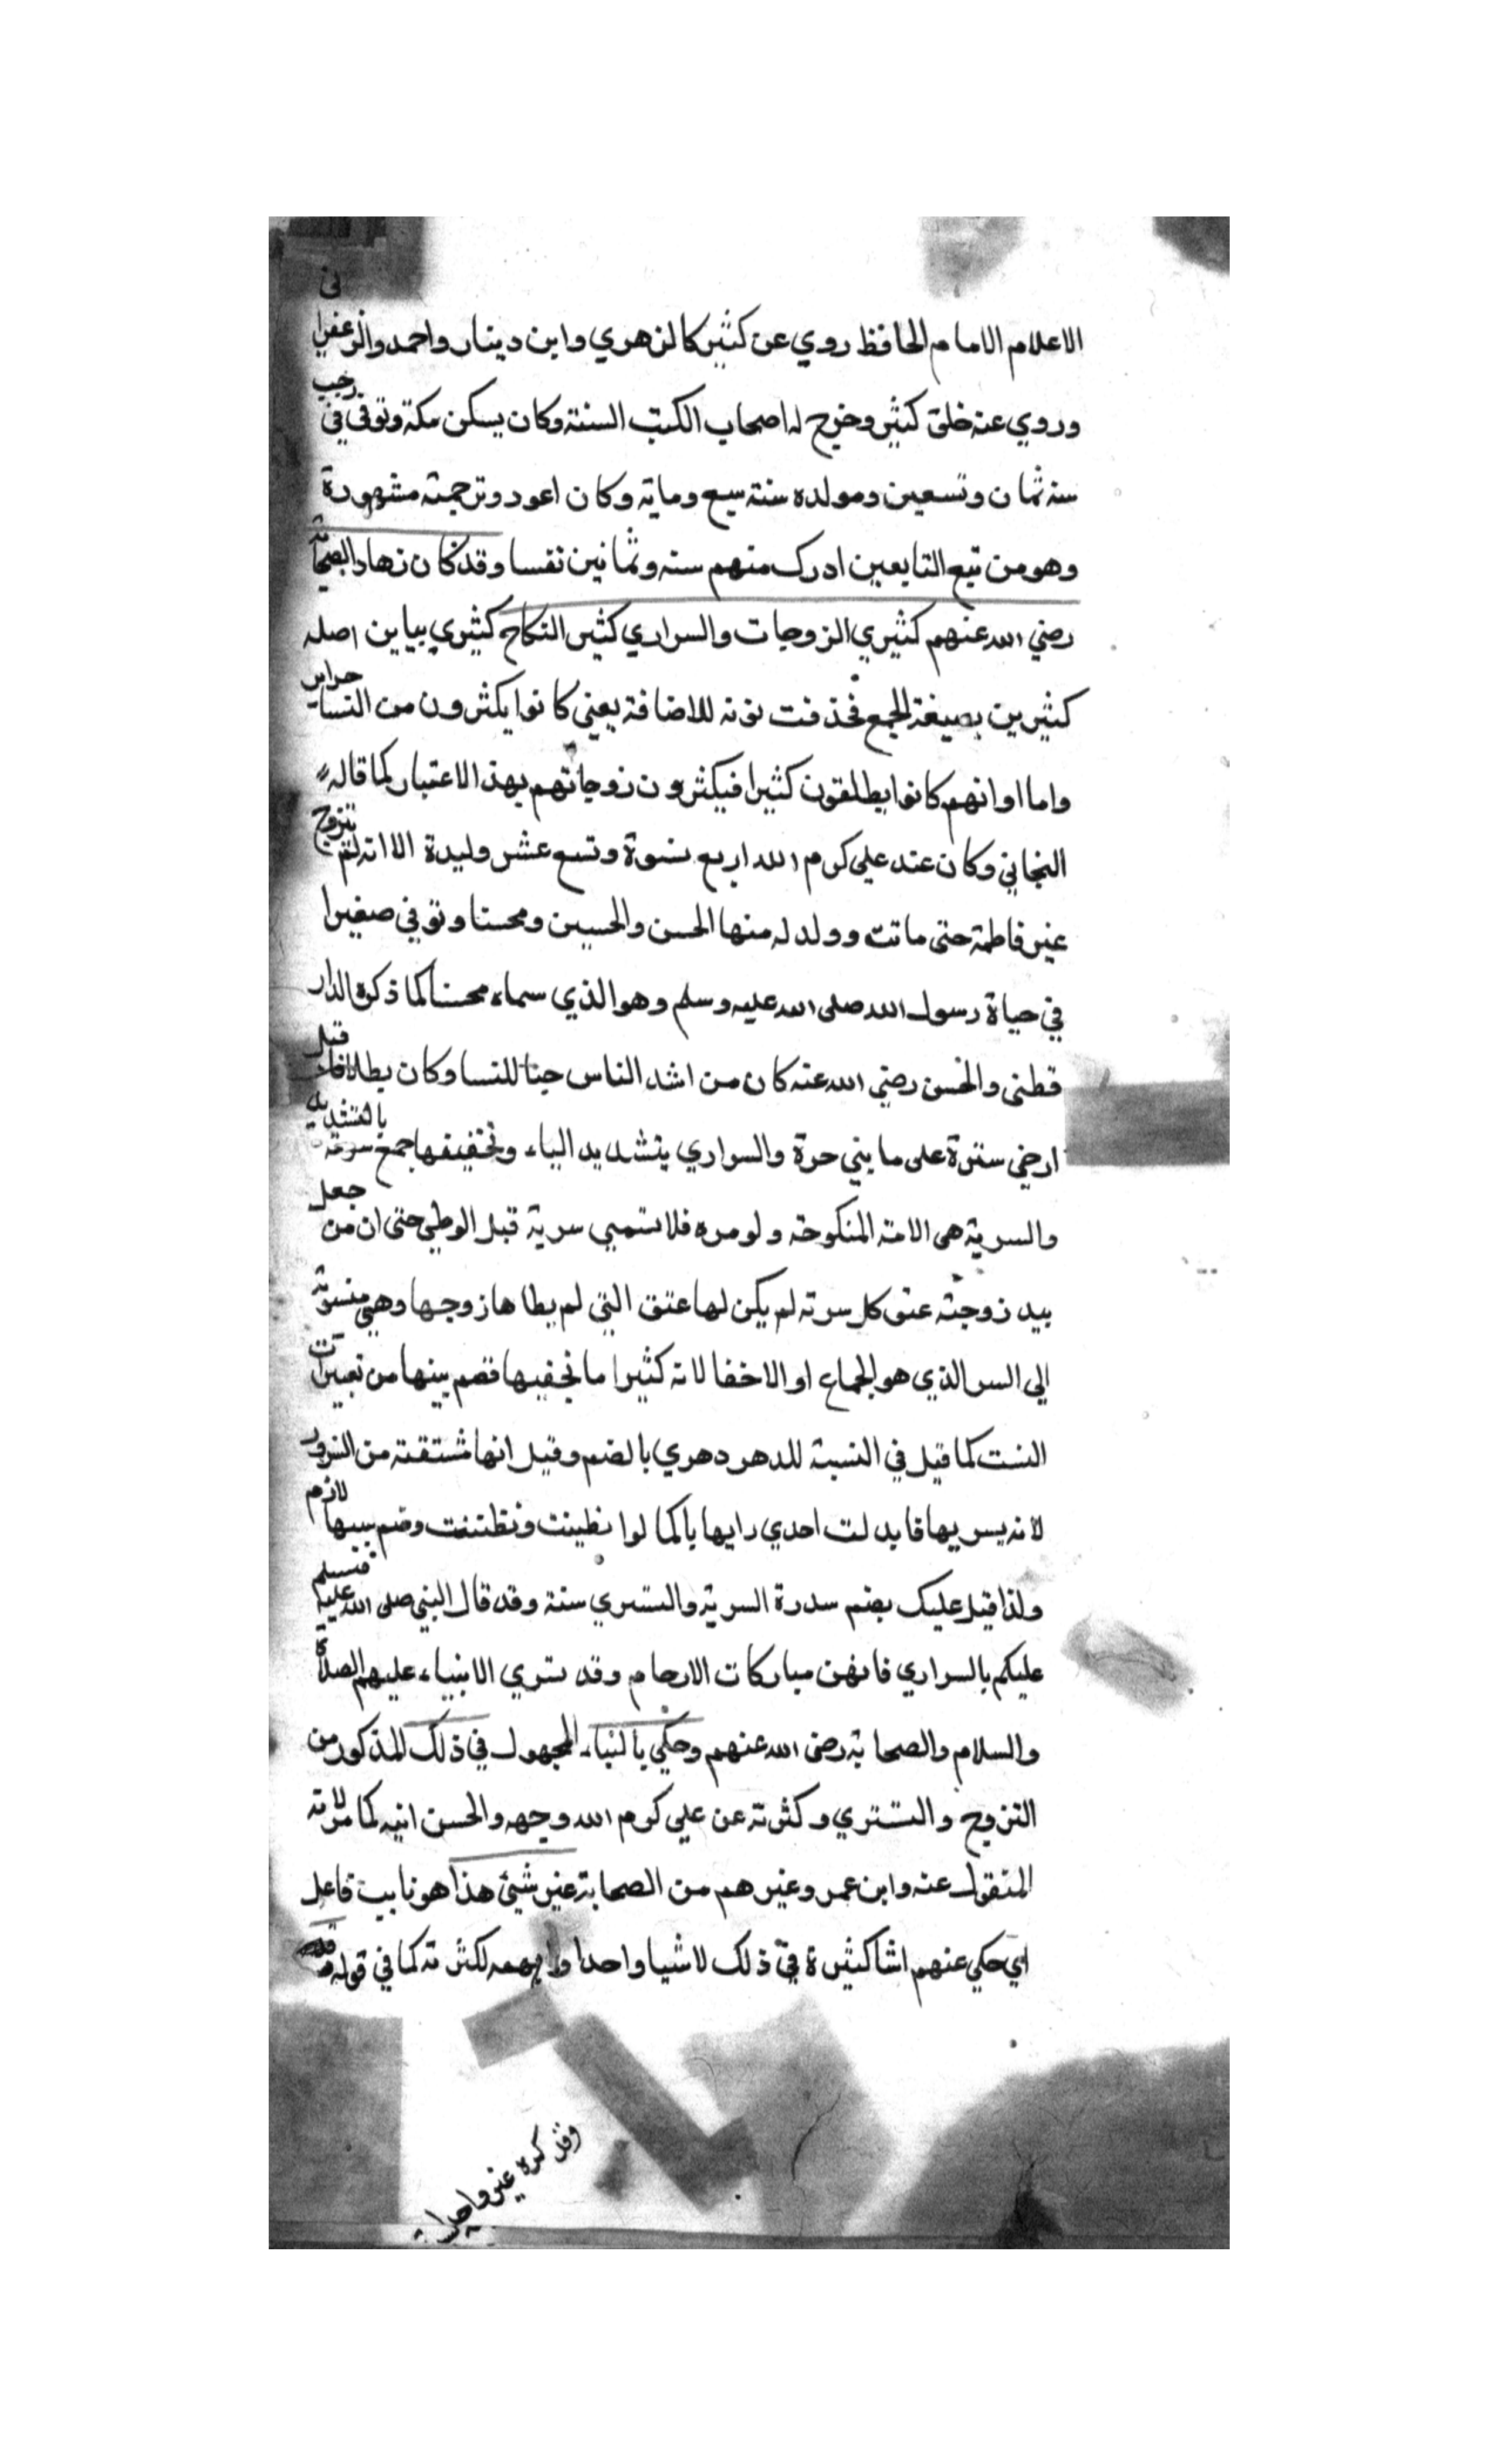 الاعلام الامام الحافظ روي عن كثير كالزهري وابن دينار واحمد والزعفراني
وروي عنه خلق كثير وخرج له اصحاب الكتب الستة وكان يسكن مكة وتوفي في رجب
سنة ثمان وتسعين ومولده سنة سبع وماية وكان اعور وترجمته مشهورة
وهو من تبع التابعين ادرك منهم ستة وثمانين نفسا وقد كان زهاد الصحابة
رضي الله عنهم كثيري الزوجات والسراري كثير النكاح كثيري بياين اصله
كثيرين بصيغة الجمع فحذفت نونه للاضافة يعني كانوا يكثرون من النسا
واما او انهم كانوا يطلقون كثيرا فيكثرون زوجاتهم بهذا الاعتبار كما قاله
التجاني وكان عند علي كرم الله اربع نسوة وتسع عشر وليدة الا انه لم يتزوج
غير فاطمة حتى ماتت وولد له منها الحسن والحسين ومحسنا وتوفي صغيرا
في حياة رسول الله صلى الله عليه وسلم وهو الذي سماه محسنا كما ذكره الدار
قطني والحسن رضي الله عنه كان من اشد الناس حبا للنسا وكان يطلاقا قيل
ارخي سترة على مايتي حرة والسراري بتشديد الياء وتخفيفها جمع سرية بالتشديد
والسرية هى الامة المنكوحة ولو مره فلا تسمي سرية قبل الوطي حتى ان من جعل
بيد زوجته عتق كل سرته لم يكن لها عتق التي لم يطاها زوجها وهي منسوبة
الي السر الذي هو الجماع او الاخفا لانه كثيرا ما نخفيها فضم بينها من تغييرات
النست كما قيل في النسبة للدهر دهري بالضم وقيل انها مشتقة من السرور
لانه يسر بها فابدلت احدي رايها يا كما لوا نظينت وتظننت وضم سببها لازم
ولذا قيل عليك بضم سدرة السرية والتسري سنة وقد قال النبي صلى الله عليه وسلم
عليكم بالسراري فانهن مباركات الارحام وقد تسري الانبياء عليهم الصلاة
والسلام والصحابة رضى الله عنهم وحكي بالبناء للمجهول في ذلك المذكور من
التزوج والتسري وكثرته عن علي كرم الله وجهه والحسن ابنه كما مر لانه
المنقول عنه وابن عمر وغيرهم من الصحابة غير شيئ هذا هو نايب فاعل
اي حكي عنهم اشا كثيرة في ذلك لا شيا واحدا وابهمه لكثرته كما في قوله
وقد كره غير واحد